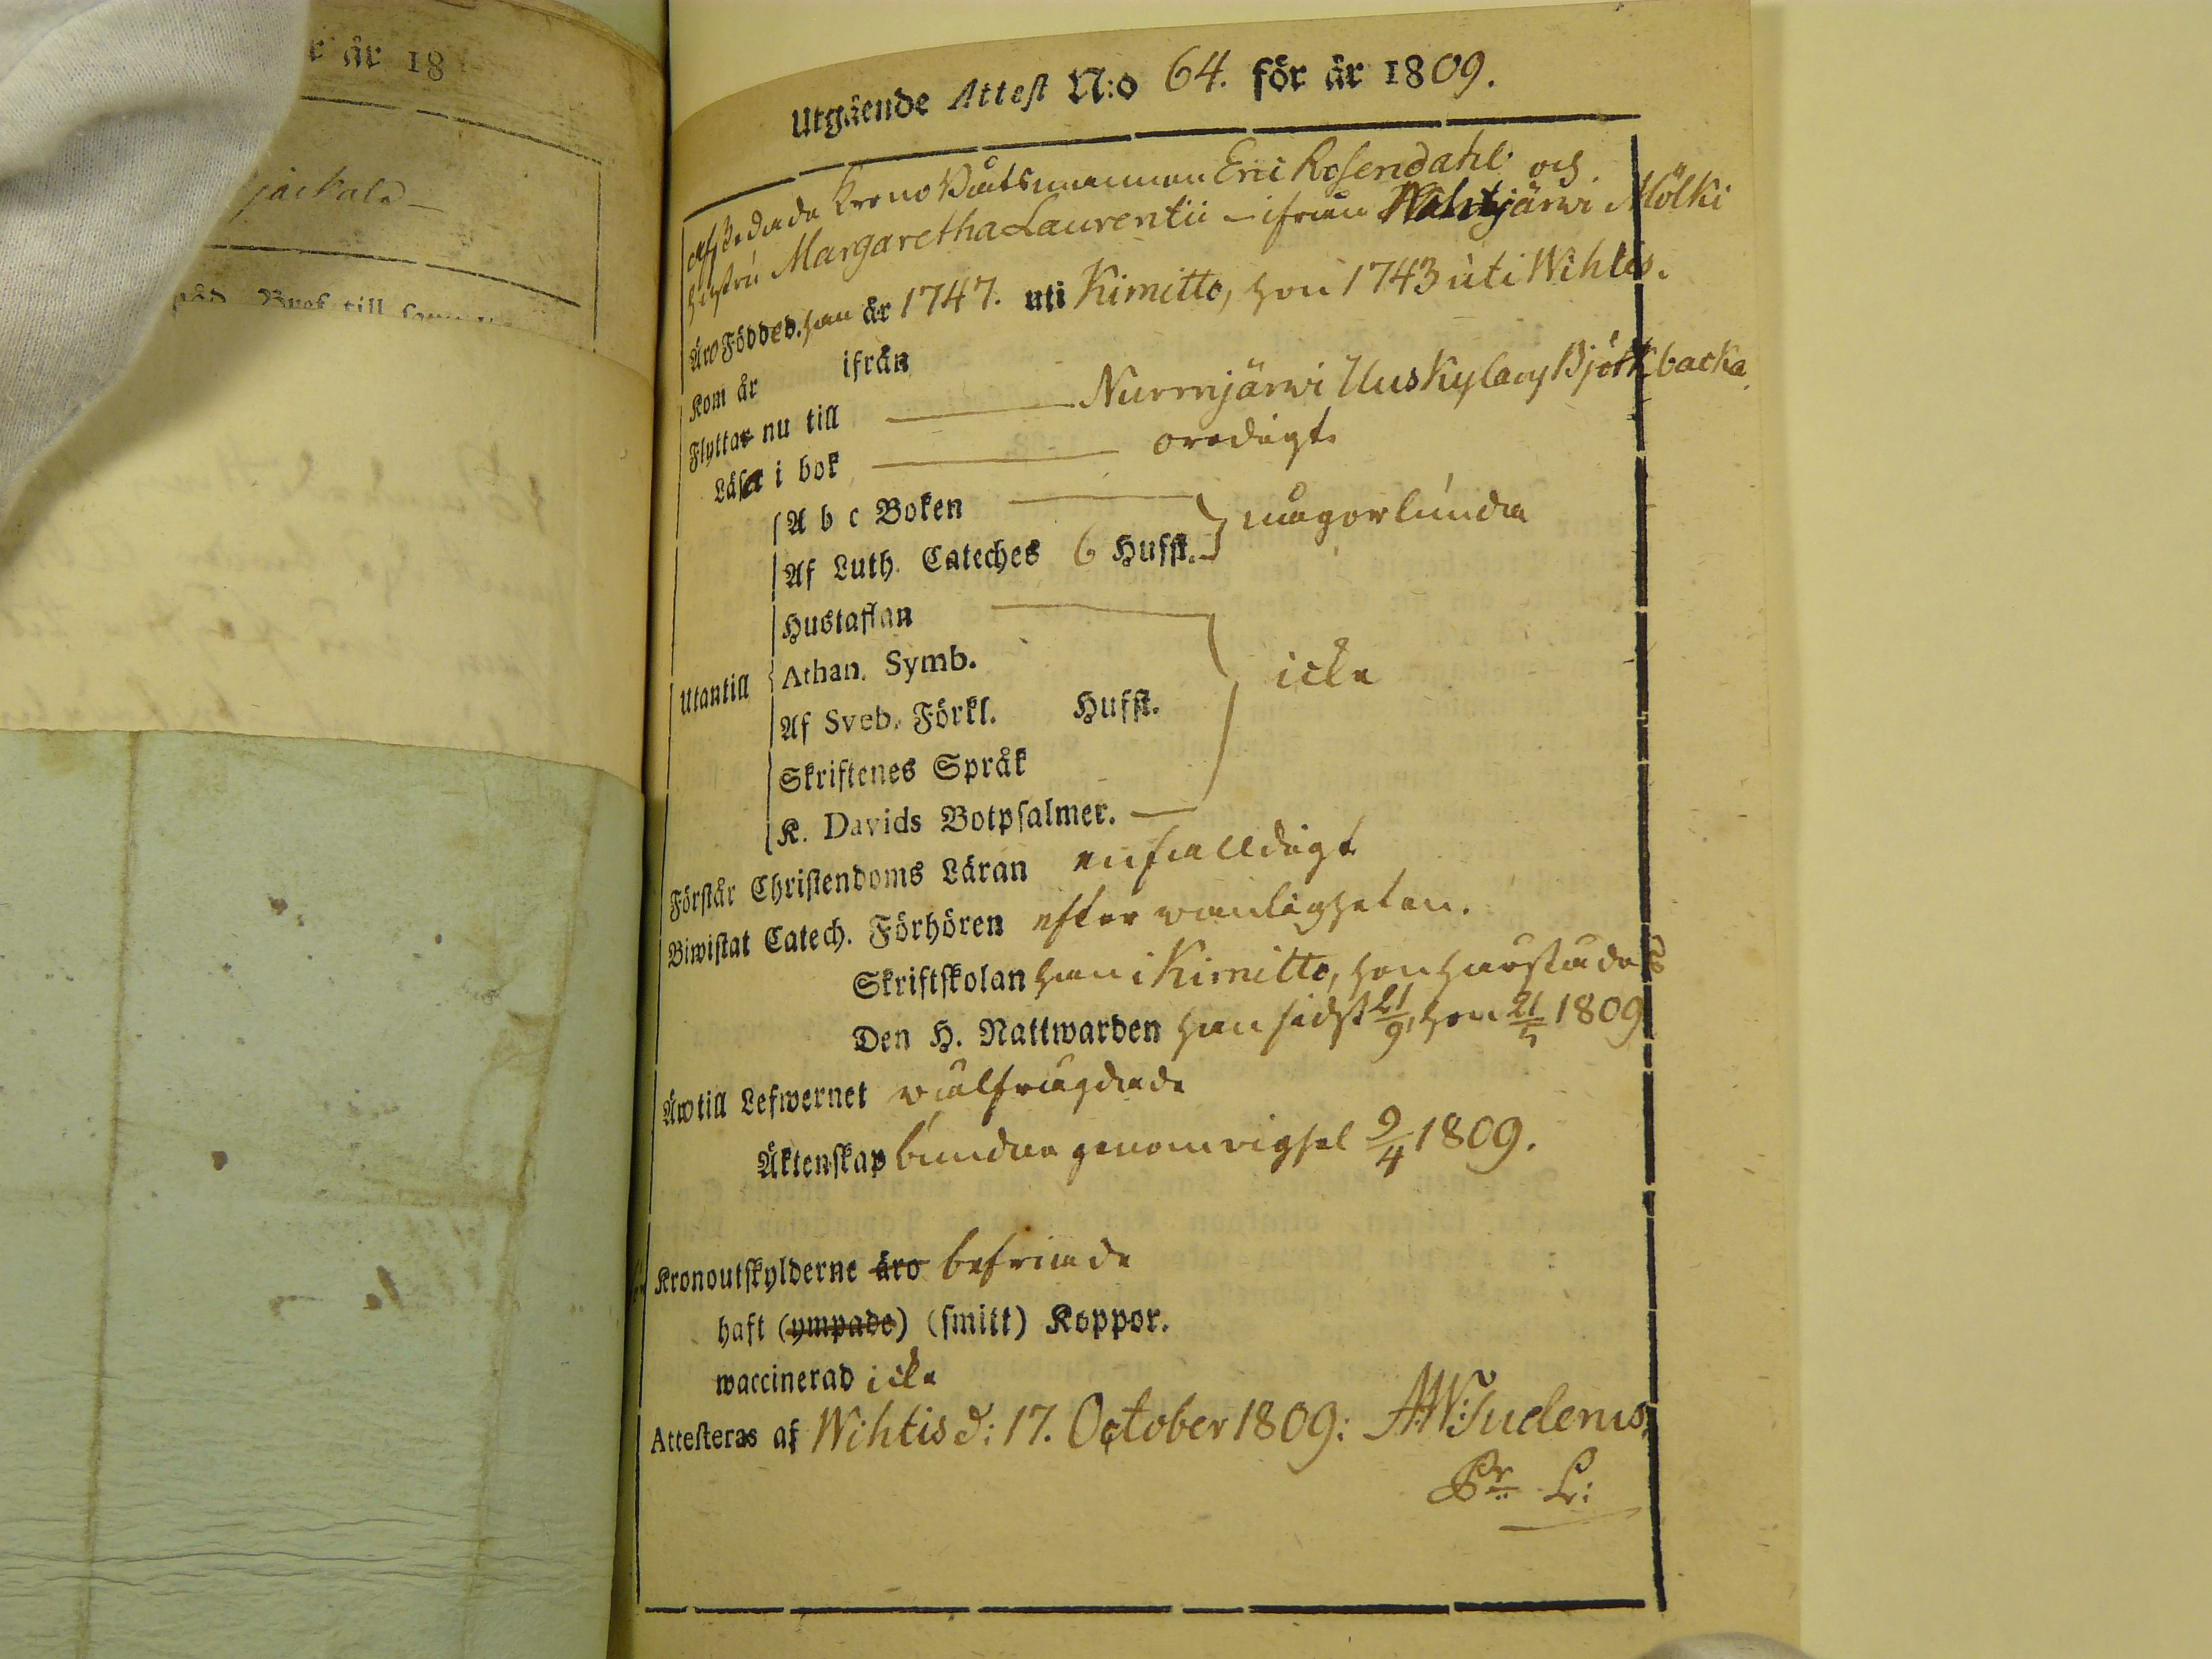 r år 18
jäckala
Utgående Attest N:o 64. för år 1809.
Afskedade Krono Båtsmannen Eric Rosendahl och
hustru Margaretha Laurentii - ifrån Wahtjärwi Mölki
Äro Födde. han år 1747. uti Kimitto, hon 1743 uti Wihtis.
Kom år ifrån
Flyttar nu till Nurmjärwi Uuskyla och Björkbacka
Läsa i bok oredigt
A b c Boken
Af Luth. Cateches 6 Hufst. någorlunda
Hustaflan
Athan. Symb.
Utantill icke
Af Sveb. Förkl. Hufst.
Skriftenes Språk
K. Davids Botpsalmer.
Förstår Christendoms Läran enfalldigt
Biwistat Catech. Förhören efter wanligheten.
Skriftskolan han i Kimitto, hon härstädes
Den H. Nattwarden han sidst 21/9, hon 21/5 1809
Äro till Lefwernet wälfrägdade
Äktenskap bundne genom vigsel 9/4 1809.
Kronoutskylderne äro befriade
haft (ympade) (smitt) Koppor.
waccinerad icke
Attesteras af Wihtis d: 17. October 1809: